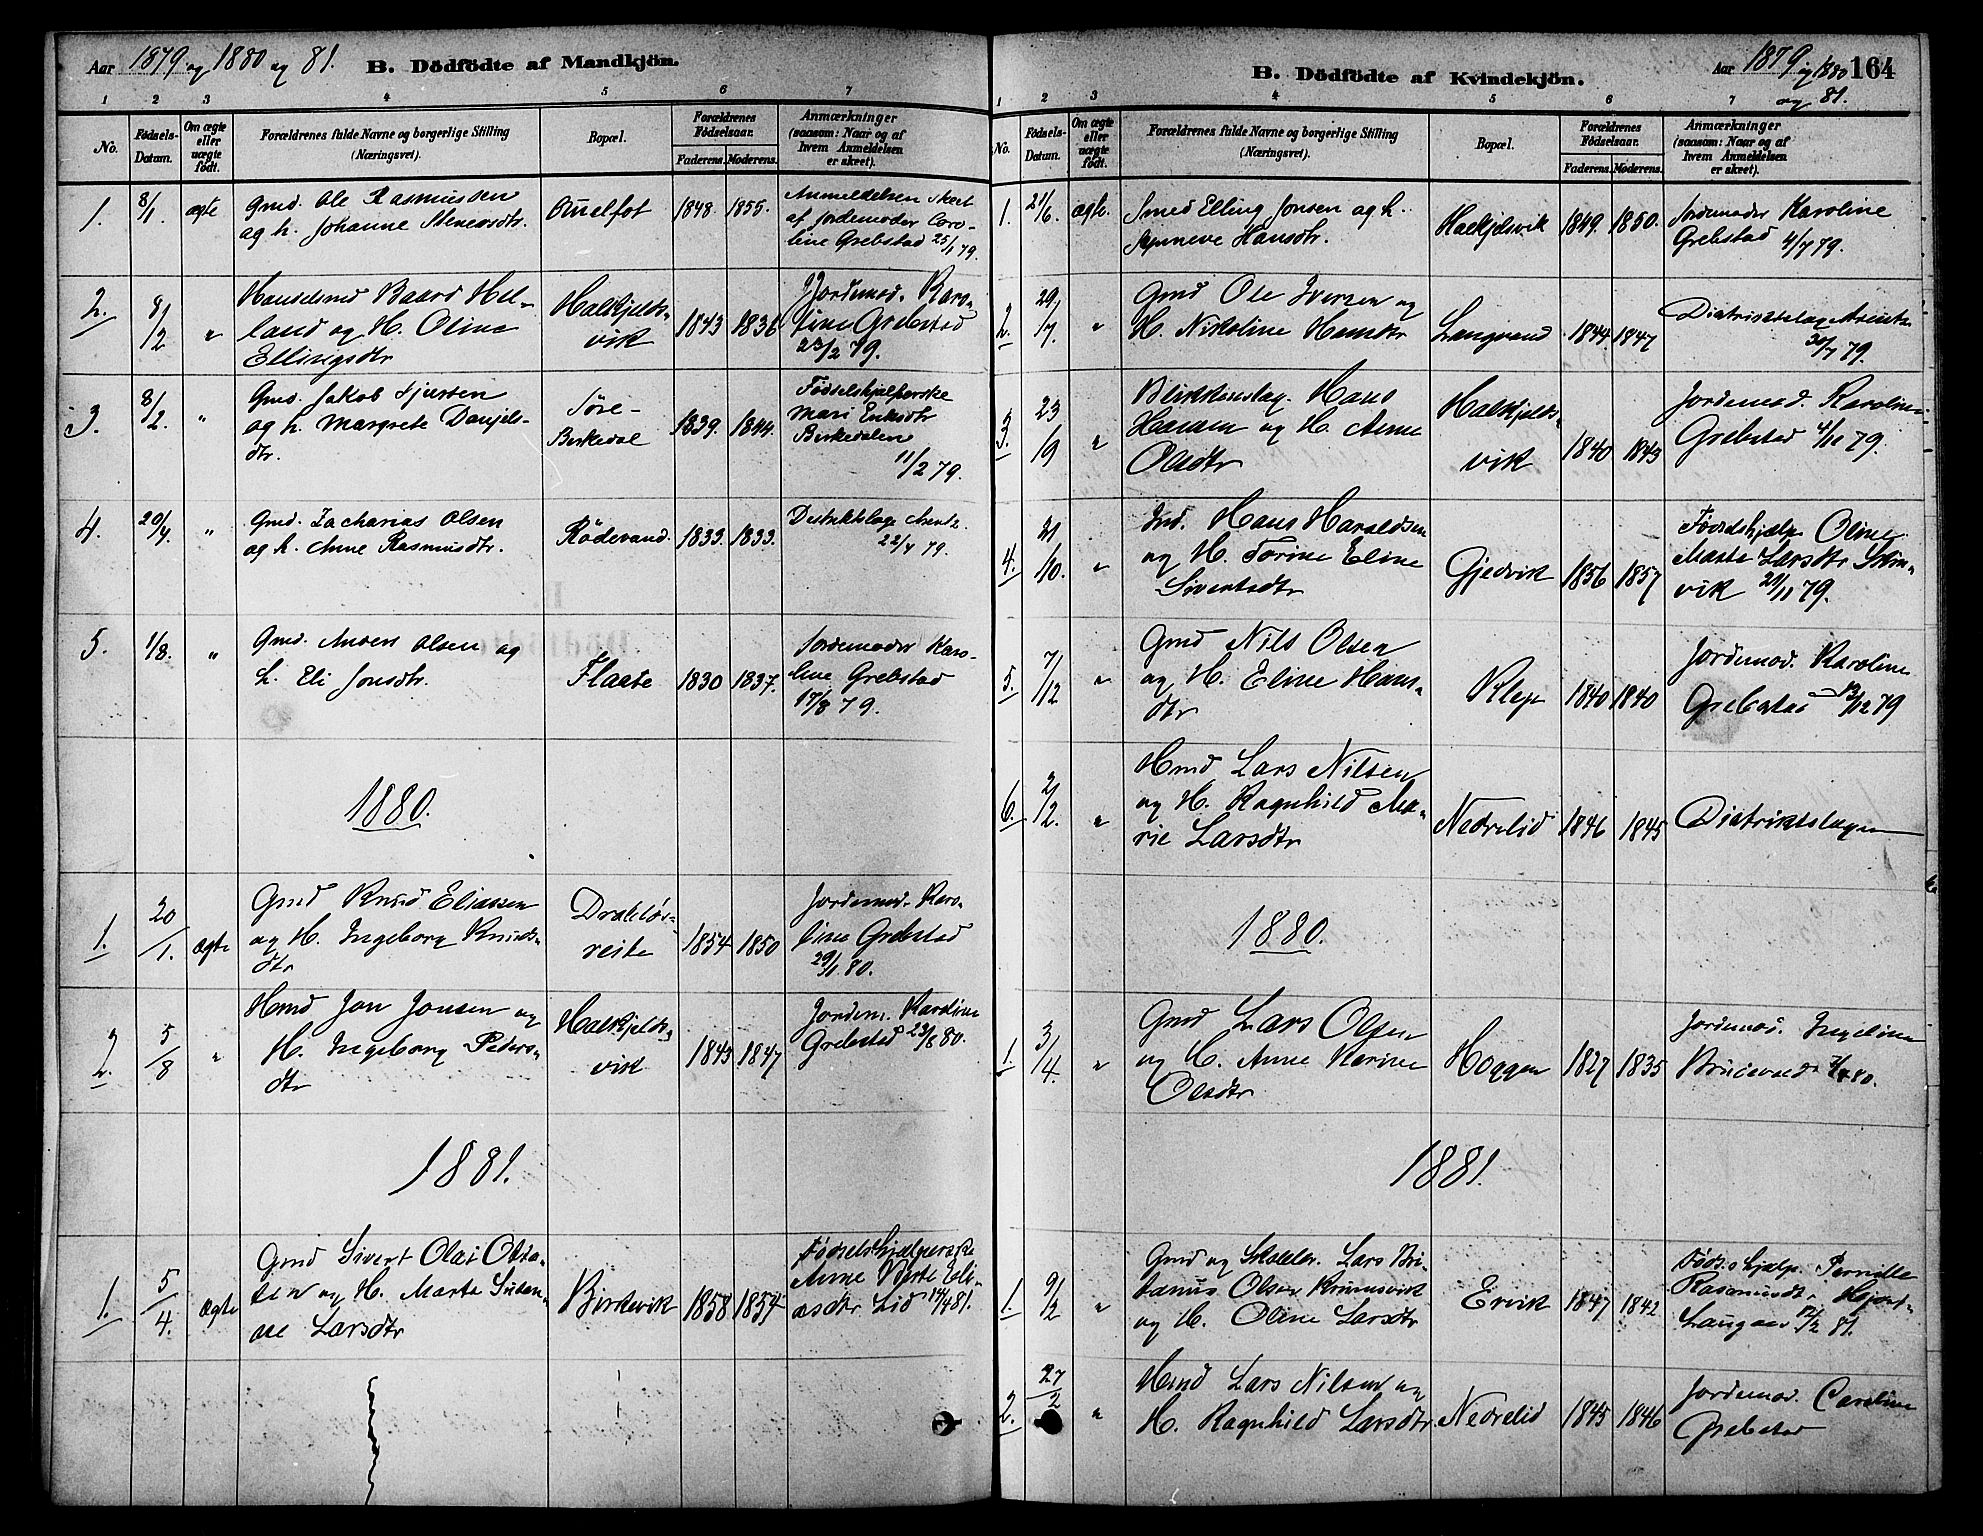 Aar 1879 og 1880 og 81. B. Dödfödte af Mandkjön.
1 2 3 4 5 6 7
No. Födsels-Datum. Om ægte eller uægte födt. Forældrenes fulde Navne og borgerlige Stilling (Næringsvei). Bopæl. Forældrenes Födselsaar. Faderens. Moderens. Anmærkninger (saasom: Naar og af hvem Anmeldelsen er skeet).
1. 8/1 ægte Gmd. Ole Rasmussen 1848. 1855. Anmeldelsen skeet
og h. Johanne af Jordemoder Caro-
line Grebstad 25/1 79.
2. 8/2 " Baard Hel- Halkjelds- 1843 1836 Jordemod. Karo-
land og H. Oline vik line Grebstad
Ellingsdtr 23/2 79.
3. 8/2. " Gmd. Jakob Søre- 1839. 1844. Fødselshjælperske
og h. Margrete Danjels- Birkedal Mari Eriksdtr
dtr. Birkedalen
11/2 79.
4. 20/4. " Gmd. Zacharias Olsen Rödevand. 1833. 1833. Distriktslæge Arentz
og h. Anne Rasmusdtr. 22/4 79.
5. 1/8. " Gmd. Anders Olsen og Flaate 1830 1837. Jordemoder Karo-
h. Eli Jonsdtr. line Grebstad
17/8 79.
1880.
1. 20/1. ægte Gmd Knud Eliassen 1854 1850 Jordemod. Karo-
og H. Ingeborg Knuds- reite line Grebstad
dtr 29/1 80.
2. 5/8 " Hmd Jon Jonsen og Halkjelds- 1843 1847 Jordem. Karoline
H. Ingeborg Peders- vik Grebstad 23/8 80.
dtr
1881.
1. 5/4. ægte Gmd Sivert Olai Olsa- Birkevik 1858 1854 Fødselshjælperske
og H. Marte Anne Berte Eli-
Larsdtr asdtr Lid 14/4 81.
Aar 1879 og 1880 og 81. 164
B. Dödfödte af Kvindekjön.
1 2 3 4 5 6 7
No. Födsels-Datum. Om ægte eller uægte födt. Forældrenes fulde Navne og borgerlige Stilling (Næringsvei). Bopæl. Forældrenes Födselsaar. Faderens. Moderens. Anmærkninger (saasom: Naar og af hvem Anmeldelsen er skeet).
1. 21/6. Smed Elling Jonsen og h. Halkjelsvik 1849. 1850. Jordemoder Karoline
Synneve Hansdtr. Grebstad
4/7 79.
2. 29/7. " Gmd Ole Iversen og Langvand 1844. 1847 Distriktslæge Arentz
H. Nikoline 30/7 79.
3. 23/9 " Hans Halkjelds- 1840 1843 Jordemod. Karoline
Hansen og H. Anne vik Grebstad 4/11 79.
Olsdtr
4. 21/10. " Ind. Hans Haraldsen Gjedvik 1856 1857 Oline
og H. Torine Eline Marte Larsdtr
Sivertsdtr vik 29/11 79.
5. 7/12 " Gmd Nils Olsen Klep 1840 1840 Jordemod. Karoline
og H. Eline Hans- Grebstad 13/12 79
dtr
6. 2/12. " Hmd Lars Nilsen Nedrelid 1846 1845 Distriktslægen
og H. Ragnhild Ma-
rie Larsdtr
1880.
1. 3/4. " Gmd Lars Olsen Hoggen 1827 1835 Jordemod. Ingeline
og H. Anne Karine
Olsdtr
1881.
1. 9/2 " Gmd og Lars Bri- Ervik 1847 1842 Føds.hjælp. Pernille
tanus Olsen Rasmusdtr
og H. Oline Larsdtr 12/2 81.
2. 27/2 " Hmd Lars Nilsen og Nedrelid 1845 1846 Jordemod. Caroline
H. Ragnhild Larsdtr Grebstad